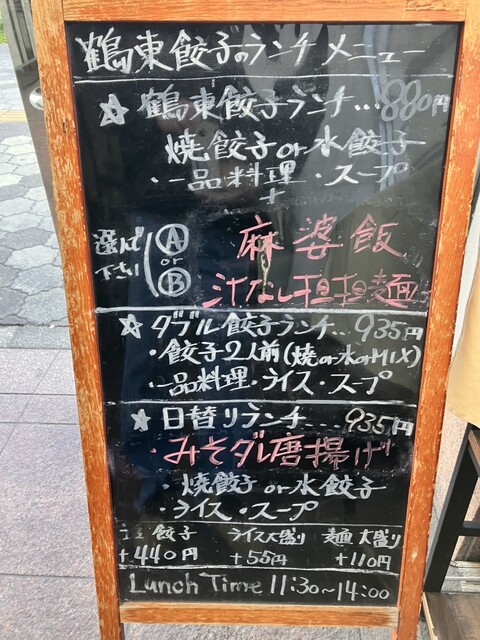 鶴東餃子のランチメニュー
☆鶴東餃子ランチ…880円
焼餃子or水餃子
・一品料理・スープ
+
選んで下さい
A 麻婆飯
or
B 汁なし担担麺
☆ダブル餃子ランチ…935円
・餃子2人前(焼or水orMIX)
・一品料理・ライス・スープ
☆日替りランチ…935円
・みそダレ唐揚げ
・焼餃子or水餃子
・ライス・スープ
餃子 ライス大盛り 麺大盛り
+440円 +55円 +110円
Lunch Time 11:30~14:00